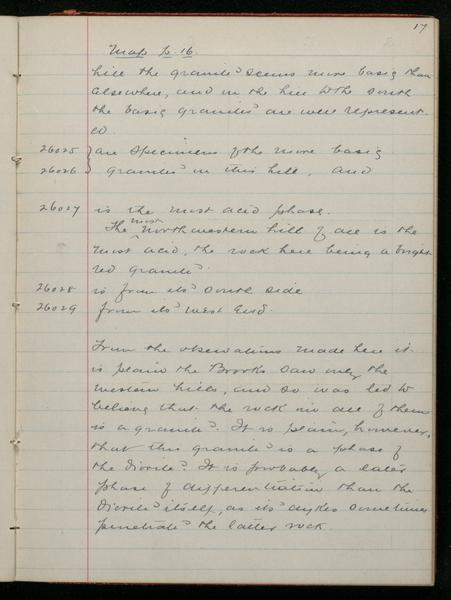 17
Map p. 16.
hill the granite seems more basic than
elsewhere, and in the hill to the south
the basic granites are well represent-
ed.
26025 } are specimens of the more basic
26026 } granites in this hill, and
26027 is the most acid phase.
The most northwestern hill of all is the
most acid, the rock here being a bright
red granite.
26028 is from its south side
26029 from its west end.
From the observations made here it
is plain the Brooks saw only the
western hills, and so was led to
believing that the rock in all of them
is a granite. It is plain, however,
that this granite is a phase of
the diorite. It is probably a later
phase of differentiation than the
diorite itself, as its dykes sometimes
penetrate the latter rock.